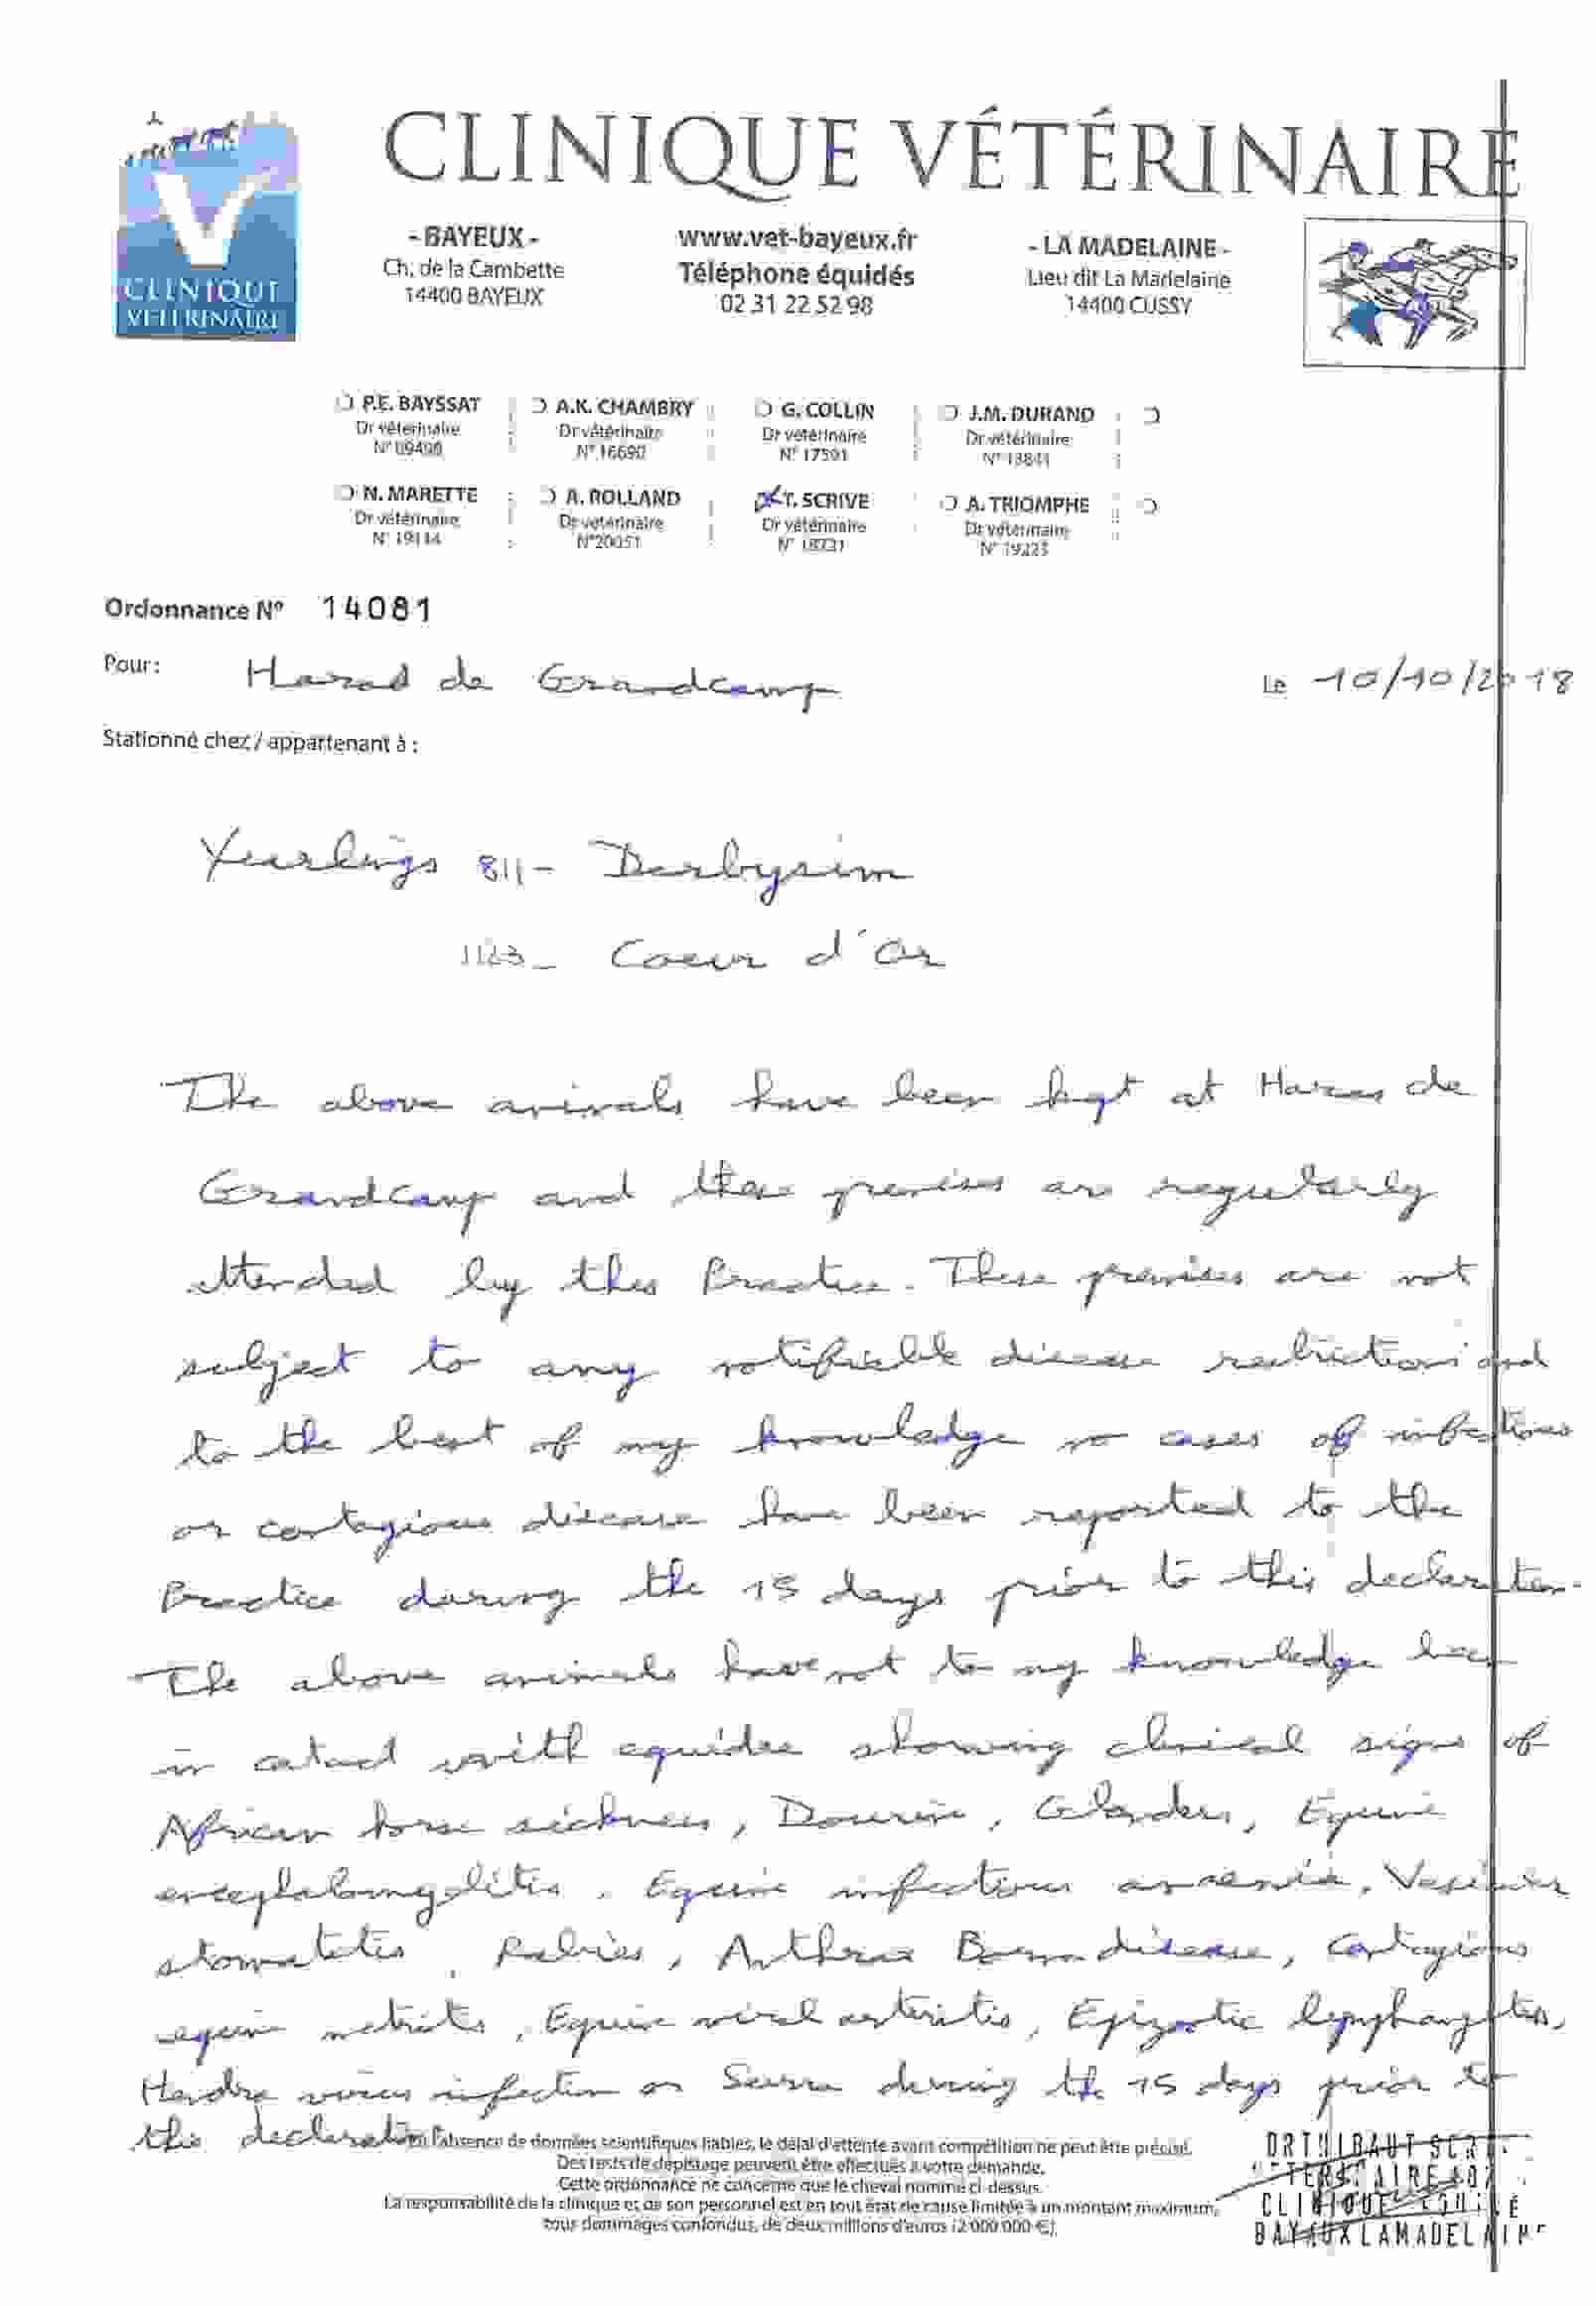 CLINIQUE VÉTÉRINAIRE
CLINIQUE
VÉTÉRINAIRE
- BAYEUX -
Ch. de la Cambette
14400 BAYEUX
www.vet-bayeux.fr
Téléphone équidés
02 31 22 52 98
- LA MADELAINE -
Lieu dit La Madelaine
14400 CUSSY
P.E. BAYSSAT
Dr vétérinaire
N° 09490
A.K. CHAMBRY
Dr vétérinaire
N° 16690
G. COLLIN
Dr vétérinaire
N° 17591
J.M. DURAND
Dr vétérinaire
N° 13841
N. MARETTE
Dr vétérinaire
N° 19144
A. ROLLAND
Dr vétérinaire
N°20051
T. SCRIVE
Dr vétérinaire
N° 18721
A. TRIOMPHE
Dr vétérinaire
N° 19223
Ordonnance N° 14081
Pour: Haras de Grandcamp Le 10/10/2018
Stationné chez / appartenant à :
Yearlings 811- Derbysim
1123 - Coeur d'Or
The above animals have been kept at Haras de
Grandcamp and these premises are regularly
attended by this Practice. These premises are not
subject to any notifiable disease restrictions and
to the best of my knowledge no cases of infectious
or contagious disease have been reported to the
Practice during the 15 days prior to this declaration.
The above animals have not to my knowledge been
in contact with equidae showing clinical signs of
African horse sickness, Dourine, Glanders, Equine
encephalomyelitis, Equine infectious anaemia, Vesicular
stomatitis, Rabies, Anthrax Borna disease, Contagious
equine metritis, Equine viral arteritis, Epizootic lymphangitis,
Hendra virus infection or Surra during the 15 days prior to
this declaration
En l'absence de données scientifiques fiables, le délai d'attente avant compétition ne peut être précisé.
Des tests de dépistage peuvent être effectués à votre demande.
Cette ordonnance ne concerne que le cheval nommé ci-dessus.
La responsabilité de la clinique et de son personnel est en tout état de cause limitée à un montant maximum,
tous dommages confondus, de deux millions d'euros (2 000 000 €).
DR THIBAUT
CLINIQUE
LAMADELAINE